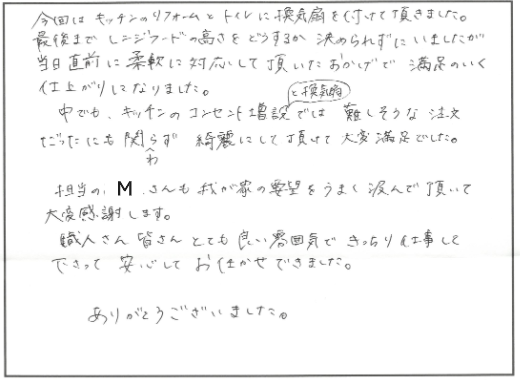 今回は キッチンのリフォームと トイレに 換気扇を付けて頂きました。
最後まで レンジフードの高さを どうするか 決められずにいましたが
当日直前に 柔軟に 対応して 頂いたおかげで 満足のいく
仕上がりになりました。
中でも、キッチンの コンセント増設と換気扇では 難しそうな 注文
だったにも関わらず 綺麗にして 頂けて 大変満足でした。
担当の、M.さんも 我が家の要望をうまく 汲んで 頂いて
大変感謝します。
職人さん 皆さん とても 良い雰囲気で きっちり仕事して
下さって 安心して お任せできました。
ありがとうございました。